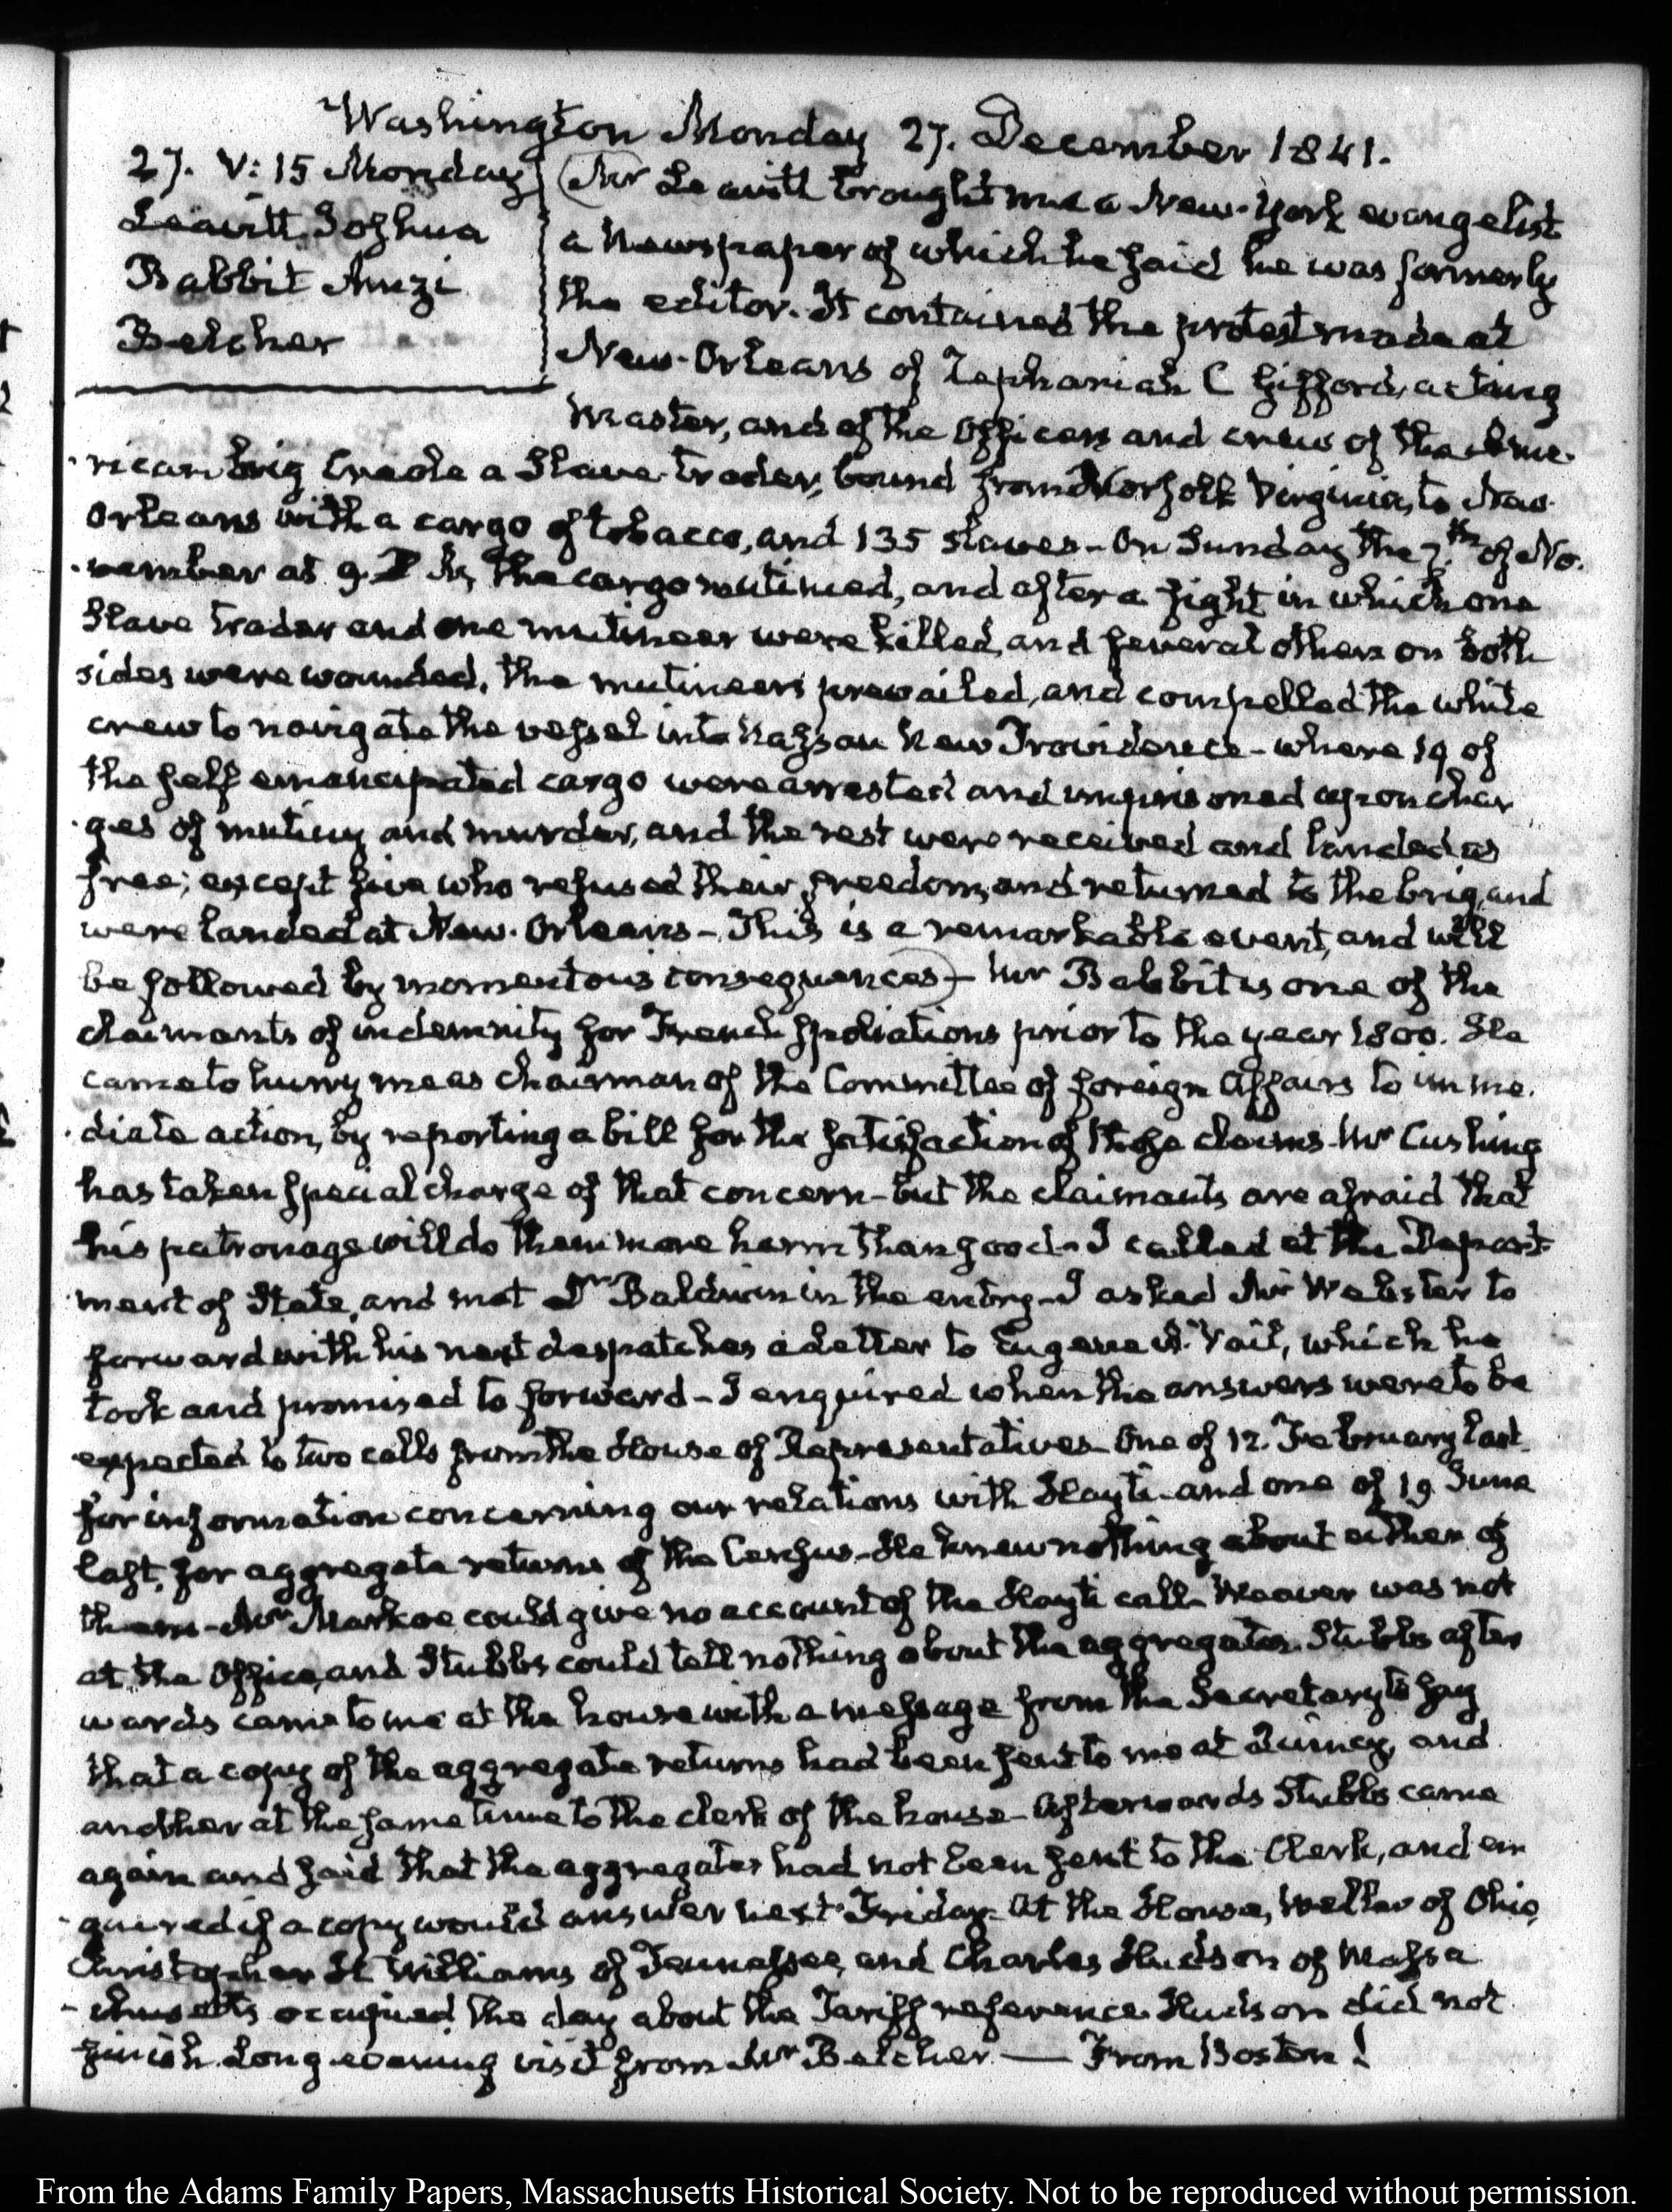 Washington Monday 27. December 1841.
27. V: 15 Monday
Leavitt Joshua
Babbit Amzi
Belcher
Mr Leavitt brought me a New-York evangelist
a Newspaper of which he said he was formerly
the editor. It contained the protest made at
New-Orleans of Zephaniah C Gifford, acting
Master, and of the Officers and crew of the Ame-
-rican brig Creole a Slave-trader, bound from Norfolk Virginia, to New-
Orleans with a cargo of tobacco, and 135 slaves - On Sunday the 7.th of No-
-vember at 9 P M, the cargo mutinied, and after a fight in which one
Slave trader and one mutineer were killed, and several others on both
sides were wounded, the mutineers prevailed, and compelled the white
crew to navigate the vessel into Nassau New Providence - where 19 of
the self emancipated cargo were arrested and imprisoned upon char
-ges of mutiny and murder, and the rest were received and landed as
free; except five who refused their freedom, and returned to the brig, and
were landed at New-Orleans - This is a remarkable event, and will
be followed by momentous consequences - Mr Babbit is one of the
claimants of indemnity for French spoliations prior to the year 1800. He
came to hurry me as chairman of the Committee of foreign Affairs to imme-
-diate action, by reporting a bill for the satisfaction of those claims - Mr Cushing
has taken special charge of that concern - but the claimants are afraid that
his patronage will do them more harm than good - I called at the Depart-
-ment of State, and met Dr Baldwin in the entry - I asked Mr Webster to
forward with his next despatches a letter to Eugene A. Vail, which he
took and promised to forward - I enquired when the answers were to be
expected to two calls from the House of Representatives One of 12. February last
for information concerning our relations with Hayti - and one of 19 June
last, for aggregate returns of the Census - He knew nothing about either of
them - Mr Markoe could give no account of the Hayti call - Weaver was not
at the Office, and Stubbs could tell nothing about the aggregates. Stubbs after
wards came to me at the house with a message from the Secretary to say
that a copy of the aggregate returns had been sent to me at Quincy, and
another at the same time to the clerk of the house - Afterwards Stubbs came
again and said that the aggregates had not been sent to the Clerk, and en
-quired if a copy would answer next Friday - At the House, Weller of Ohio,
Christopher H Williams of Tennessee, and Charles Hudson of Massa
-chusetts occupied the day about the Tariff reference. Hudson did not
finish. Long evening visit from Mr Belcher — From Boston!
From the Adams Family Papers, Massachusetts Historical Society. Not to be reproduced without permission.